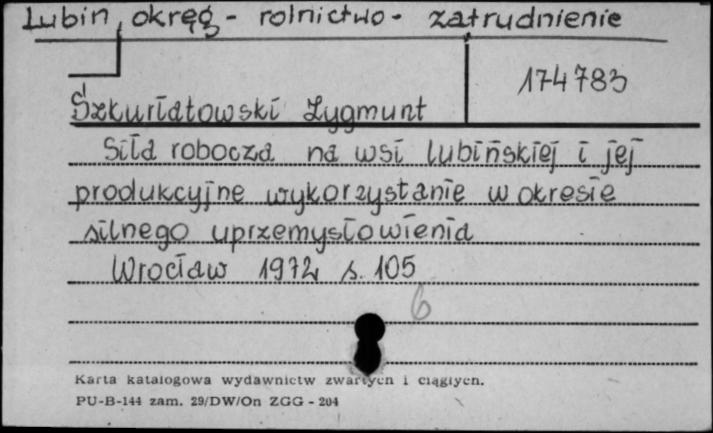 Lubin, okręg - rolnictwo - zatrudnienie
174783
Szkurłatowski Zygmunt
Siła robocza na wsi lubińskiej i jej
produkcyjne wykorzystanie w okresie
silnego uprzemysłowienia
Wrocław 1972 s. 105
6
Karta katalogowa wydawnictw zwartych i ciągłych.
PU-B-144 zam. 29/DW/On ZGG - 204